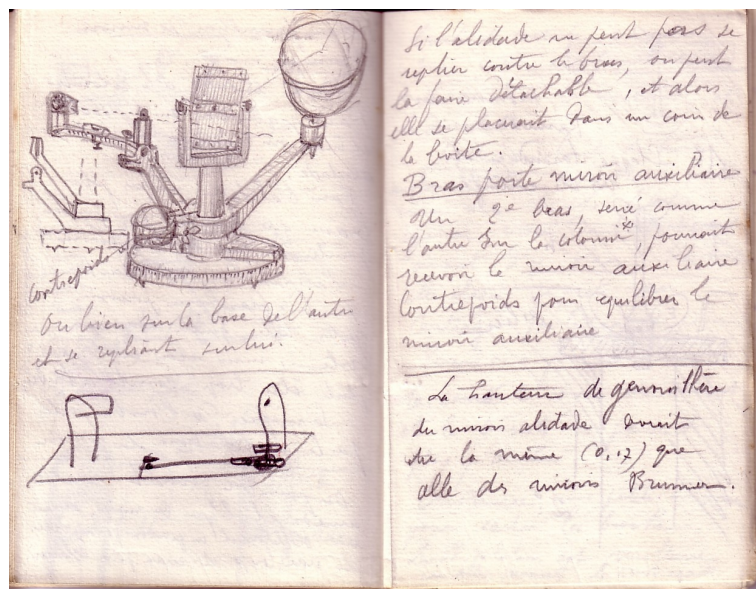 contrepoids
ou bien sur la base de l'autre
et se repliant sur lui.
Si l'alidade ne peut pas se
replier contre le bras, on peut
la faire détachable, et alors
elle se placerait dans un coin de
la boîte.
Bras porte miroir auxiliaire
Un 2e bras, serré comme
l'autre sur la colonne*, pourrait
recevoir le miroir auxiliaire
Contrepoids pour equilibrer le
miroir auxiliaire
La hauteur de genouillère
du miroir alidade
être la même (0,17) que
celle des miroirs Brunner.